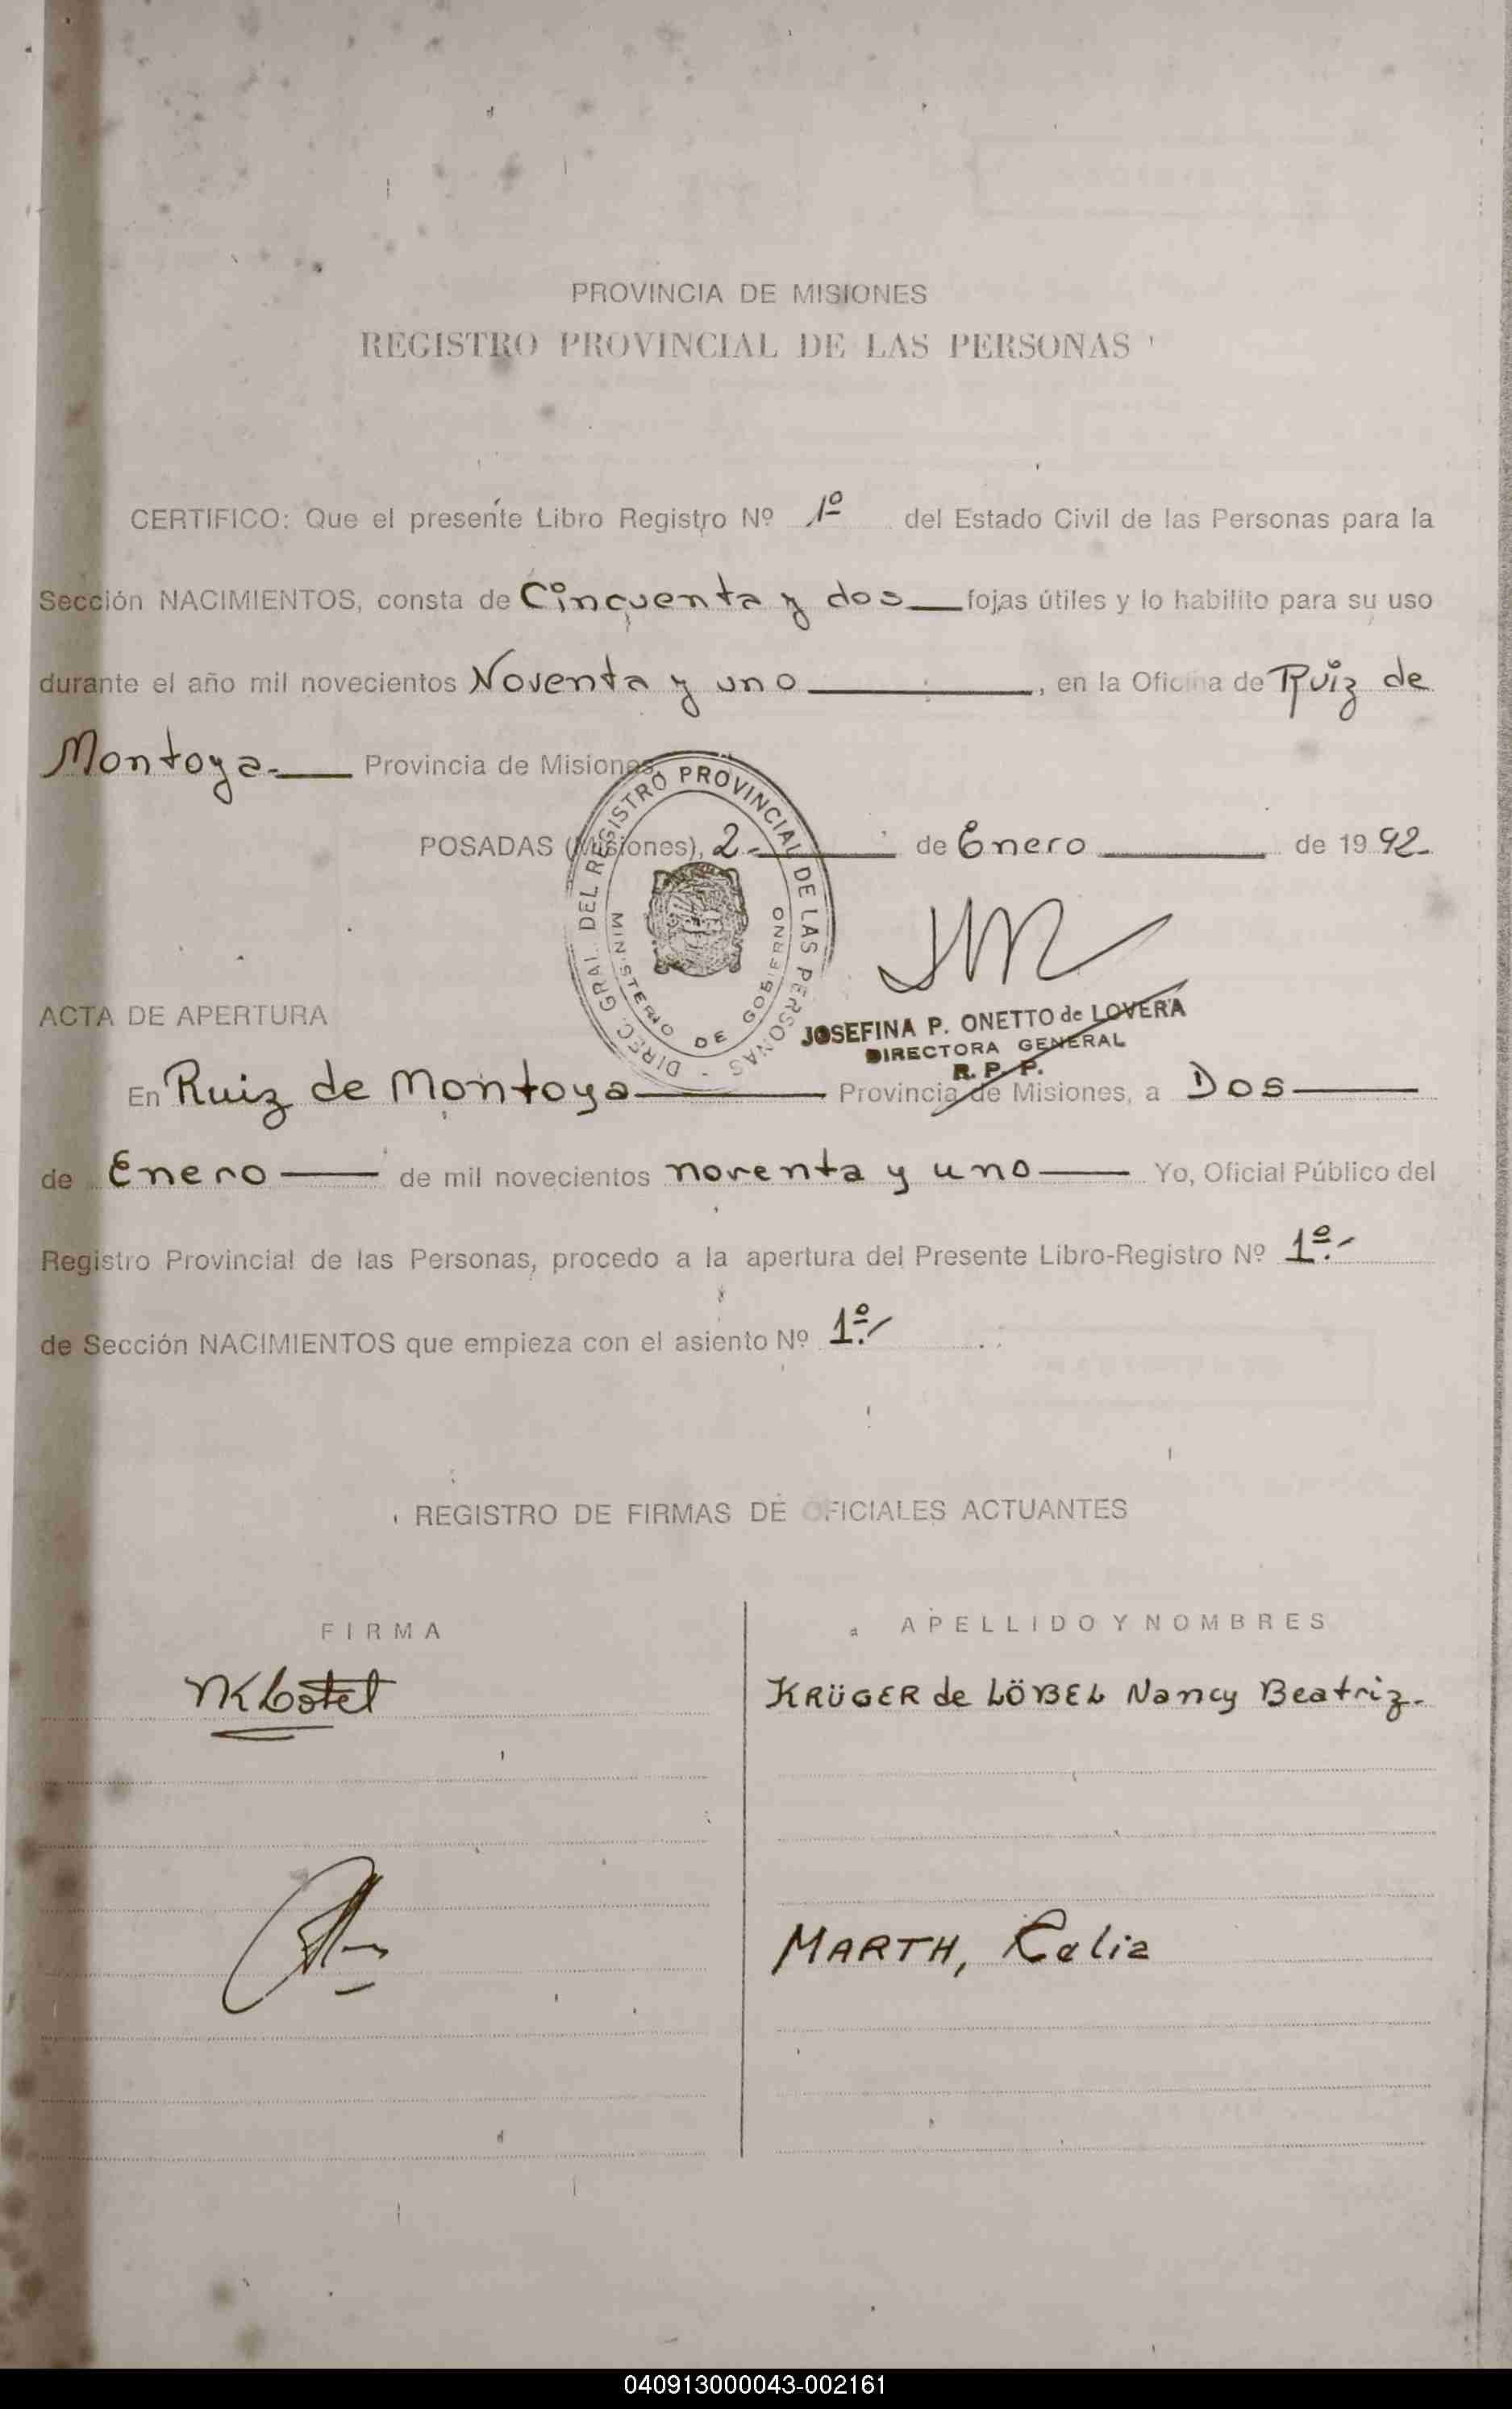 PROVINCIA DE MISIONES
REGISTRO PROVINCIAL DE LAS PERSONAS
CERTIFICO: Que el presente Libro Registro Nº 1º del Estado Civil de las Personas para la
Sección NACIMIENTOS, consta de Cincuenta y dos fojas útiles y lo habilito para su uso
durante el año mil novecientos Noventa y uno, en la Oficina de Ruiz de
Montoya.- Provincia de Misiones.
POSADAS (Misiones), 2.- de Enero de 1992.
DIREC. GRAL. DEL REGISTRO PROVINCIAL DE LAS PERSONAS -
MINISTERIO DE GOBIERNO
JOSEFINA P. ONETTO de LOVERA
DIRECTORA GENERAL
R. P. P.
ACTA DE APERTURA
En Ruiz de Montoya Provincia de Misiones, a Dos
de Enero de mil novecientos noventa y uno Yo, Oficial Público del
Registro Provincial de las Personas, procedo a la apertura del Presente Libro-Registro Nº 1º.-
de Sección NACIMIENTOS que empieza con el asiento Nº 1º.-
REGISTRO DE FIRMAS DE OFICIALES ACTUANTES
FIRMA APELLIDO Y NOMBRES
KRÜGER de LÖBEL Nancy Beatriz.
MARTH, Celia
040913000043-002161